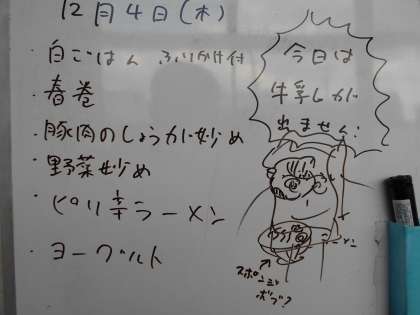 12月4日(木)
・白ごはん ふりかけ付
・春巻
・豚肉のしょうが炒め
・野菜炒め
・ピリ辛ラーメン
・ヨーグルト
今日は
牛乳しか
出ません!
スポンジ
ボブ?